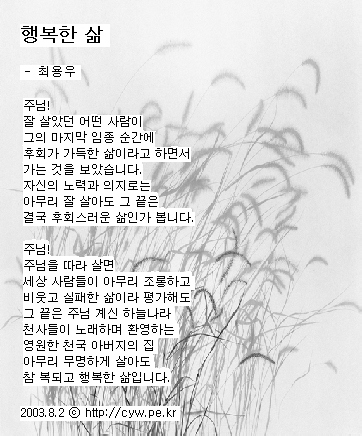 행복한 삶
- 최용우
주님!
잘 살았던 어떤 사람이
그의 마지막 임종 순간에
후회가 가득한 삶이라고 하면서
가는 것을 보았습니다.
자신의 노력과 의지로는
아무리 잘 살아도 그 끝은
결국 후회스러운 삶인가 봅니다.
주님!
주님을 따라 살면
세상 사람들이 아무리 조롱하고
비웃고 실패한 삶이라 평가해도
그 끝은 주님 계신 하늘나라
천사들이 노래하며 환영하는
영원한 천국 아버지의 집
아무리 무명하게 살아도
참 복되고 행복한 삶입니다.
2003.8.2 ⓒ http://cyw.pe.kr